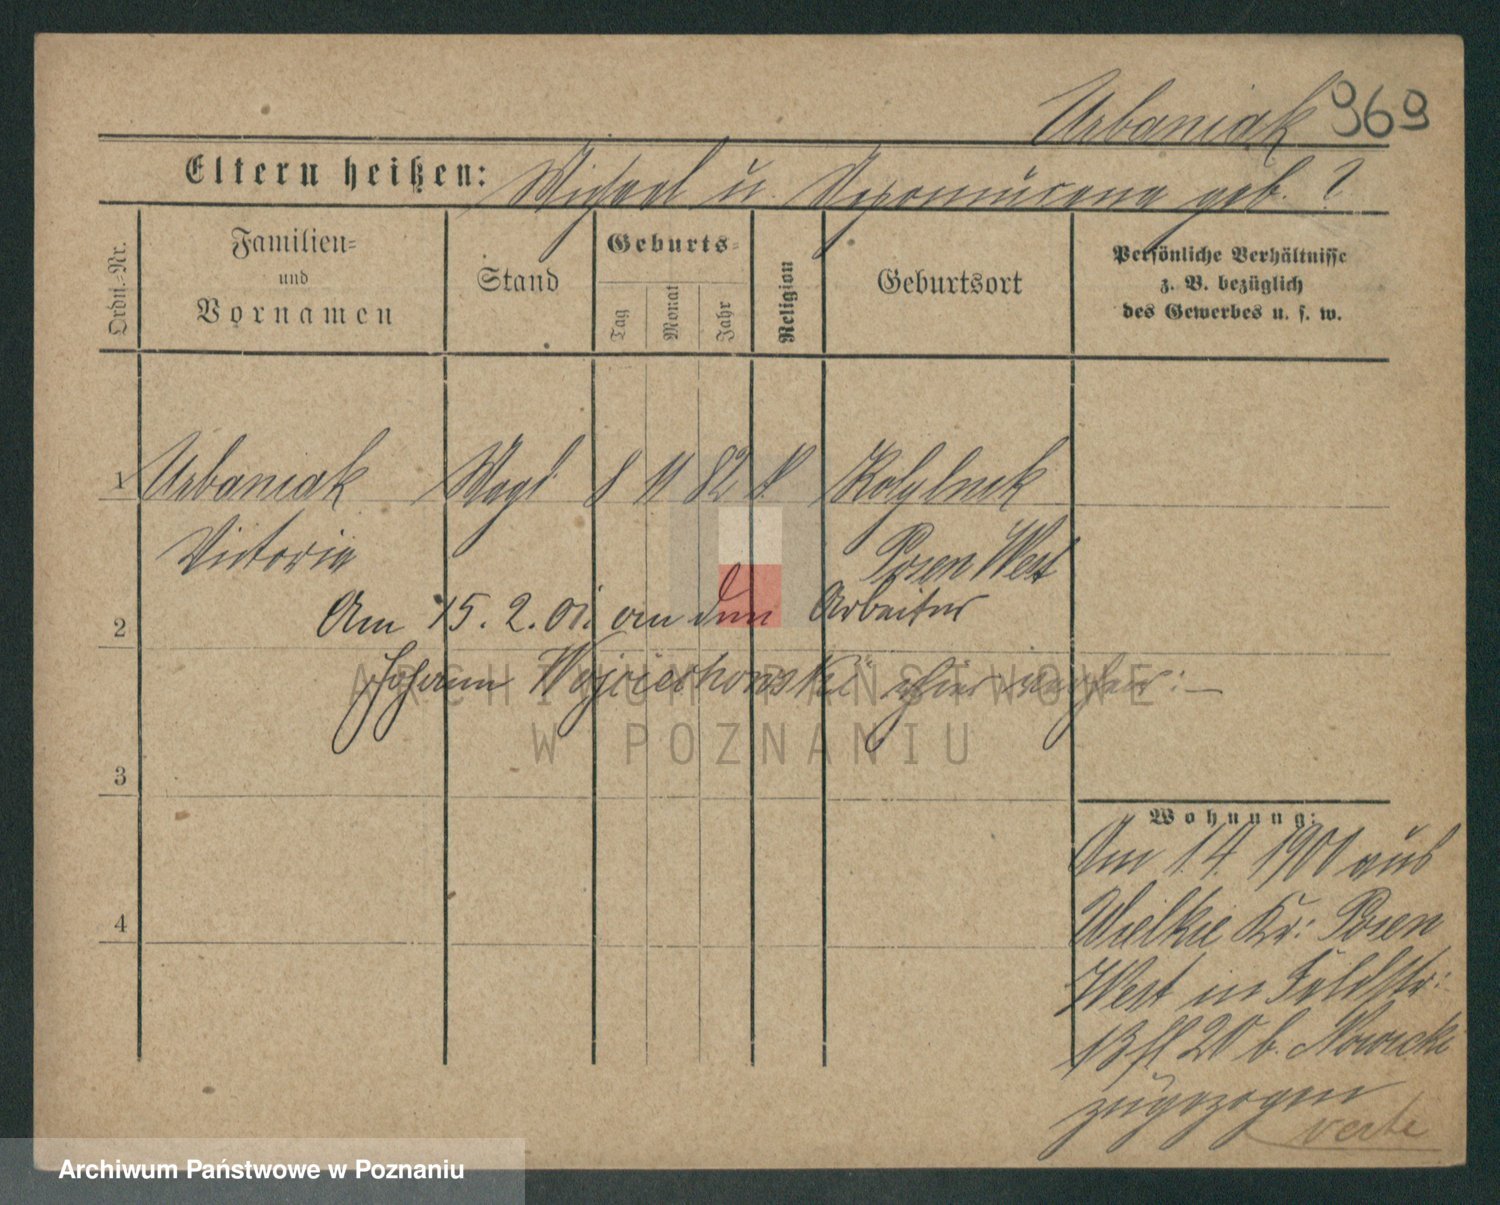 Urbaniak 969
Eltern heißen: Michael u. Nepomucena geb. ?
Ordn.-Nr.
Familien-
und
Vornamen
Stand
Geburts-
Tag
Monat
Jahr
Religion
Geburtsort
Persönliche Verhältnisse
z. B. bezüglich
des Gewerbes u. s. w.
1 Urbaniak Magd 8 11 82 k.
Victoria Posen West
Am 15.2.01. an den Arbeiter
2
Johann Wojciechowski hier
3
4
Wohnung:
Am 1.4. 1901 aus
Wielkie Kr: Posen
West in Feldstr:
13 II 20 b. Nowicki
zugezogen
verte
ARCHIWUM PAŃSTWOWE
W POZNANIU
Archiwum Państwowe w Poznaniu